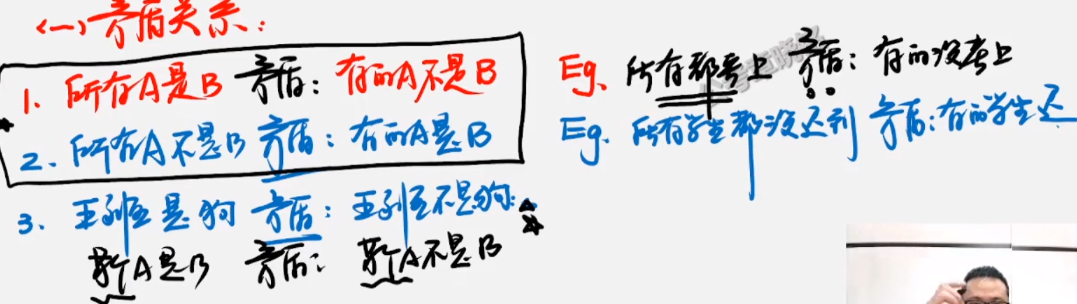 (一)矛盾关系:
1、所有A是B 矛盾: 有的A不是B
2、所有A不是B 矛盾: 有的A是B
3、王到五是狗 矛盾: 王到五不是狗.
某个A是B 矛盾: 某个A不是B
Eg、所有都考上 矛盾: 有的没考上
Eg. 所有学生都没迟到 矛盾:有的学生迟